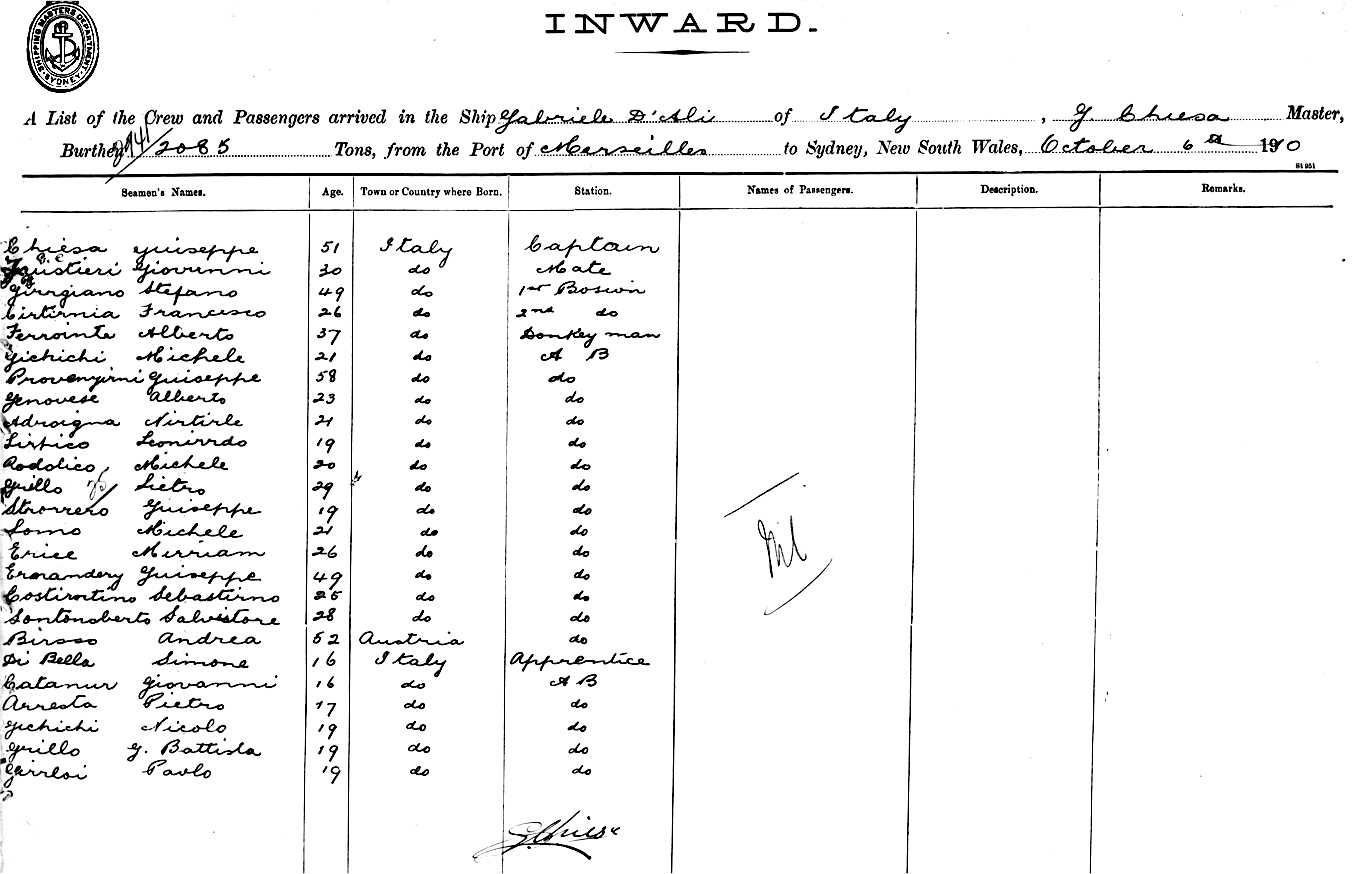 SHIPPING MASTERS DEPARTMENT SYDNEY
INWARD.
A List of the Crew and Passengers arrived in the Ship Gabriele D'Ali of Italy, G Chiesa Master,
Burthen 2085 Tons, from the Port of Marseilles to Sydney, New South Wales, October 6th 1910
Seamen's Names. Age. Town or Country where Born. Station. Names of Passengers. Description. Remarks.
Chiesa Guiseppe 51 Italy Captain
Giovunni 30 do Mate
Girrgiano Stefano 49 do 1st Boswin
Cirtirnia Francisco 26 do 2nd do
Ferrointe Alberto 37 do Donkey man
Gichichi Michele 21 do A B
Provenyirni Guiseppe 58 do do
Genovese Alberto 23 do do
Adroigna Nirtirle 21 do do
Lirtico Leonirrdo 19 do do
Rodolico, Michele 20 do do
Grillo Pietro 29 do do
Strorrero Guiseppe 19 do do
Lomo Michele 21 do do
Nil
Erice Mirriam 26 do do
Ernandery Guiseppe 49 do do
Costirntino Sebastirno 25 do do
Sontonoberto Salvistore 28 do do
Birsso Andrea 52 Austria do
Di Bella Simone 16 Italy Apprentice
Catanur Giovanni 16 do A B
Arresta Pietro 17 do do
Gichichi Nicolo 19 do do
Grillo G. Battista 19 do do
Girrloi Paolo 19 do do
G Chiesa